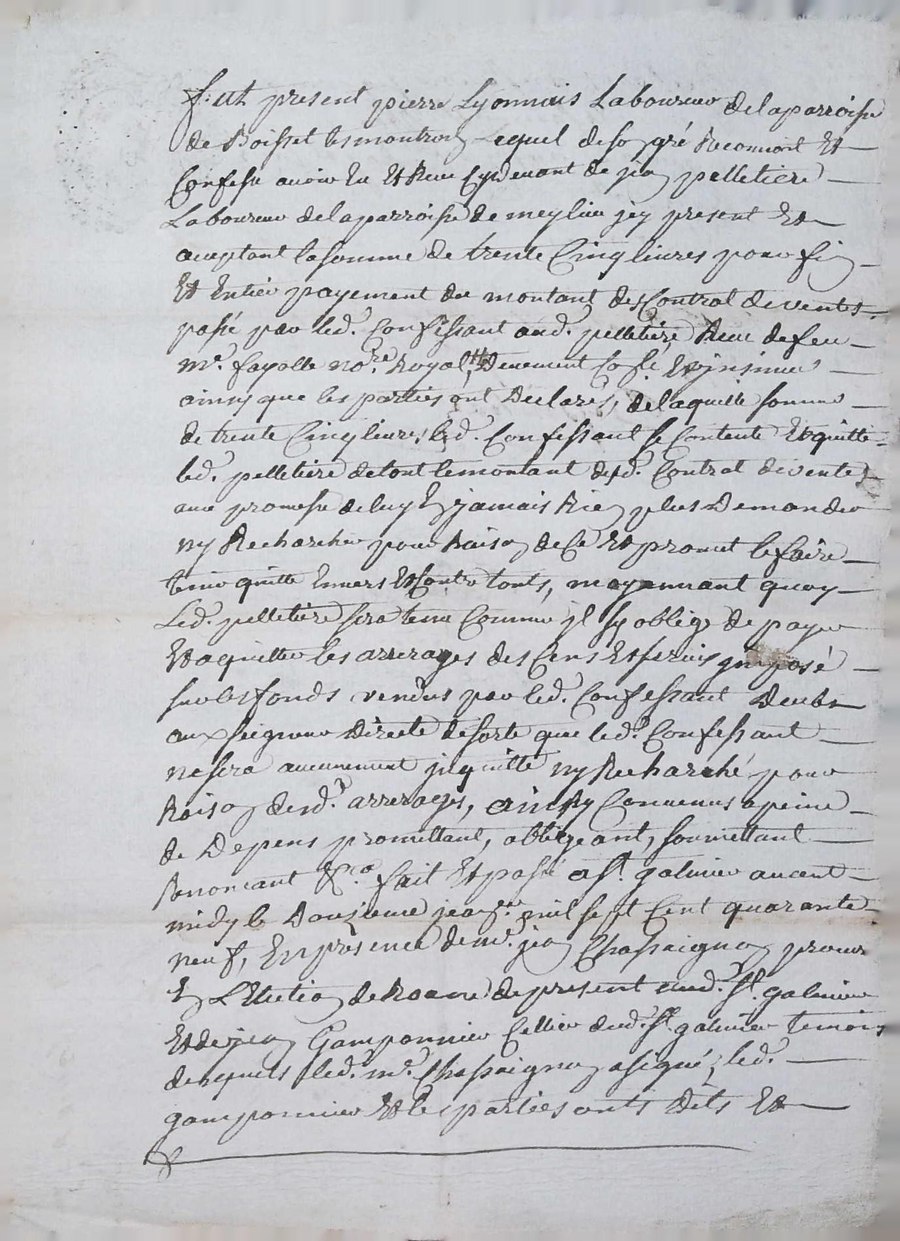 fut present pierre Lyonnais Laboureur delaparroisse
de Boisset lesmontron Lequel deson gré Reconnoit Et
Confesse avoir Eu Et Receu Cydevant de jean pelletiere
Laboureur delaparroisse de meylieu jcy present Et
aceptant lasomme de trente Cinq livres pour fin
Et Entier payement du montant de Contrat devente
passé par led. Confessant aud. pelletiere Receu defeu
mr. fayolle nore. Royal, Deuement Insinué
ainsy que les parties ont Declarés, delaquelle somme
de trente Cinq livres led. Confessant se Contente Et quitte
led. pelletiere detout lemontant dud. Contrat devente
avec promesse deluy En jamais Rien plus Demander
ny Recharcher pour Raison dece Et promet lefaire
tenir quitte Envers Et Contre touts, moyennant quoy
Led. pelletiere sera tenu Comme jl sy oblige de payer
Et aquitter les arrerages des Cens Et servis jmposé
sur les fonds vendus par led. Confessant Deubs
aux seigneur Directe desorte que led. Confessant
nesera aucunement jnquitté ny Recharché pour
Raison desd. arrerages, ainsy Convenus apeine
de Depens promettant, obligeant, soumettant
Renonceant &ca. fait Et passé a st. galmier avant
midy le Douzieme jeaner. mil sept Cent quarante
neuf, En presence de mr. jean Chassaignon procur
En L'Election de Roanne depresent aud. st. galmier
Et de jean Gamponnier Cellier dud. st. galmier temois
desquels led. mr. Chassaignon a signé, led.
gamponnier Et les parties onts dits Et